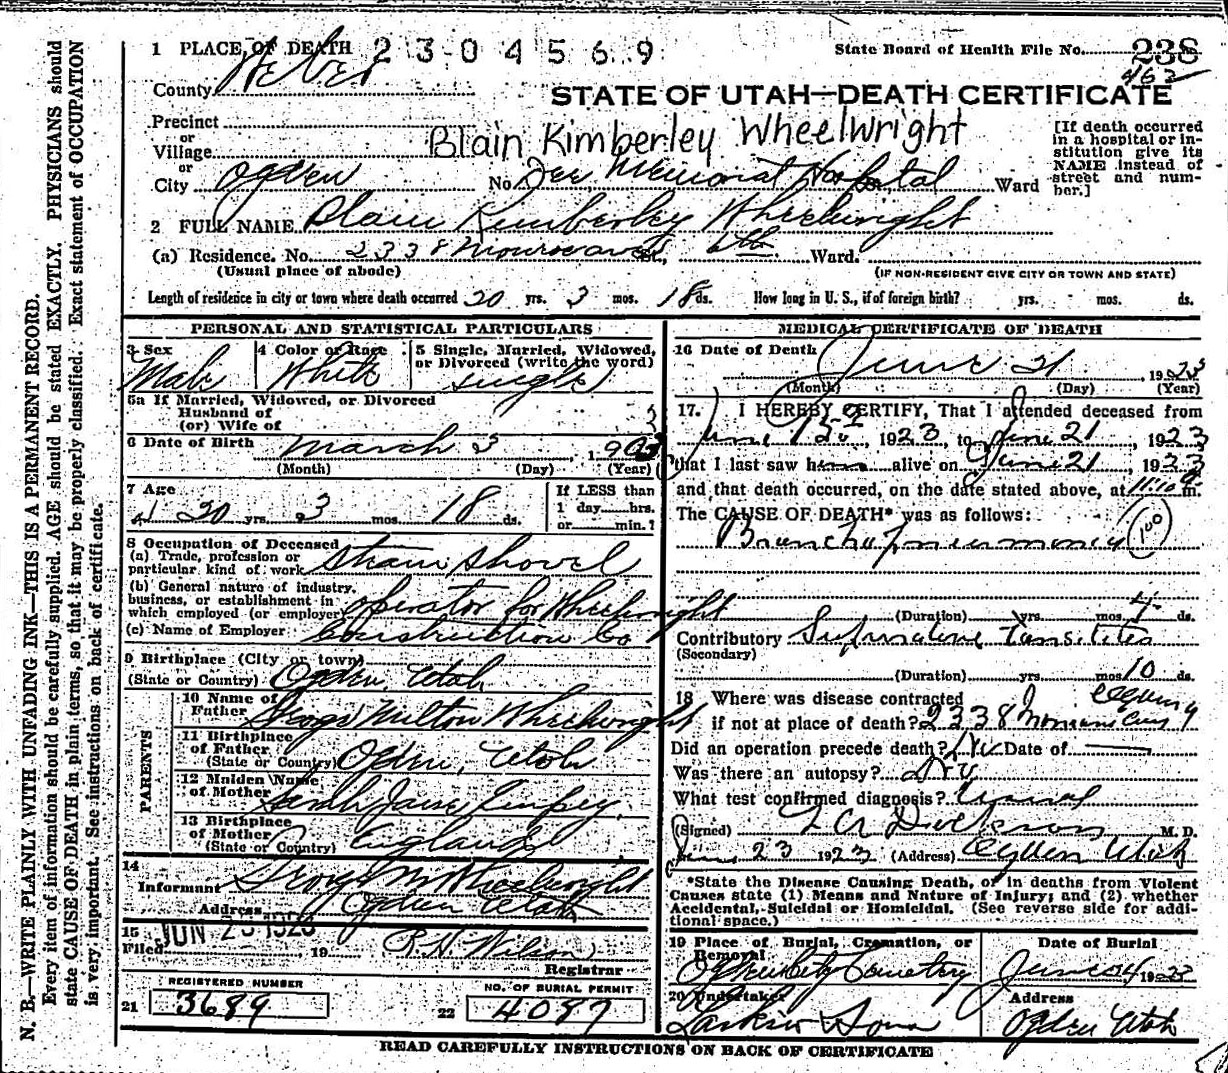 1 PLACE OF DEATH 2304569
State Board of Health File No. 238
463
County Weber
STATE OF UTAH—DEATH CERTIFICATE
Precinct
or
Village
Blain Kimberley Wheelwright
or
City Ogden No. Dee Memorial Hospital St. Ward
[If death occurred in a hospital or institution give its NAME instead of street and number.]
2 FULL NAME Blain Kimberley Wheelwright
(a) Residence. No. 2338 Monroe ave St., 6th Ward.
(Usual place of abode) (IF NON-RESIDENT GIVE CITY OR TOWN AND STATE)
Length of residence in city or town where death occurred 20 yrs. 3 mos. 18 ds. How long in U. S., if of foreign birth? yrs. mos. ds.
PERSONAL AND STATISTICAL PARTICULARS
3 Sex Male
4 Color or Race White
5 Single, Married, Widowed, or Divorced (write the word) single
5a If Married, Widowed, or Divorced
Husband of
(or) Wife of
6 Date of Birth March 3 1903
(Month) (Day) (Year)
7 Age 20 yrs. 3 mos. 18 ds.
If LESS than
1 day hrs.
or min.?
8 Occupation of Deceased
(a) Trade, profession or particular kind of work Steam Shovel
(b) General nature of industry, business, or establishment in which employed (or employer) operator for Wheelwright
(c) Name of Employer Construction Co
9 Birthplace (City or town)
(State or Country) Ogden, Utah
PARENTS
10 Name of Father George Milton Wheelwright
11 Birthplace of Father
(State or Country) Ogden, Utah
12 Maiden Name of Mother Sarah Jane
13 Birthplace of Mother
(State or Country) England
14
Informant George M Wheelwright
Address Ogden Utah
15
Filed JUN 23 1923 19 P. H. Wilson
Registrar
REGISTERED NUMBER
21 3689
NO. OF BURIAL PERMIT
22 4087
MEDICAL CERTIFICATE OF DEATH
16 Date of Death June 21, 1923
(Month) (Day) (Year)
17. I HEREBY CERTIFY, That I attended deceased from
June 15, 1923, to June 21, 1923
that I last saw him alive on June 21, 1923
and that death occurred, on the date stated above, at 11:10 m.
The CAUSE OF DEATH* was as follows:
Broncho pneumonia 100
(Duration) yrs. mos. 4 ds.
Contributory Suppurative Tonsilitis
(Secondary)
(Duration) yrs. mos. 10 ds.
18 Where was disease contracted
if not at place of death? 2338 Monroe Ave Ogden
Did an operation precede death? No Date of
Was there an autopsy? No
What test confirmed diagnosis?
(Signed) Dickson M. D.
June 23 1923 (Address) Ogden Utah
*State the Disease Causing Death, or in deaths from Violent
Causes state (1) Means and Nature of Injury; and (2) whether
Accidental, Suicidal or Homicidal. (See reverse side for additional space.)
19 Place of Burial, Cremation, or Removal Ogden City Cemetery
Date of Burial June 24, 1923
20 Undertaker Larkin & Sons
Address Ogden Utah
READ CAREFULLY INSTRUCTIONS ON BACK OF CERTIFICATE
N. B.—WRITE PLAINLY WITH UNFADING INK—THIS IS A PERMANENT RECORD.
Every item of information should be carefully supplied. AGE should be stated EXACTLY. PHYSICIANS should
state CAUSE OF DEATH in plain terms, so that it may be properly classified. Exact statement of OCCUPATION
is very important. See instructions on back of certificate.